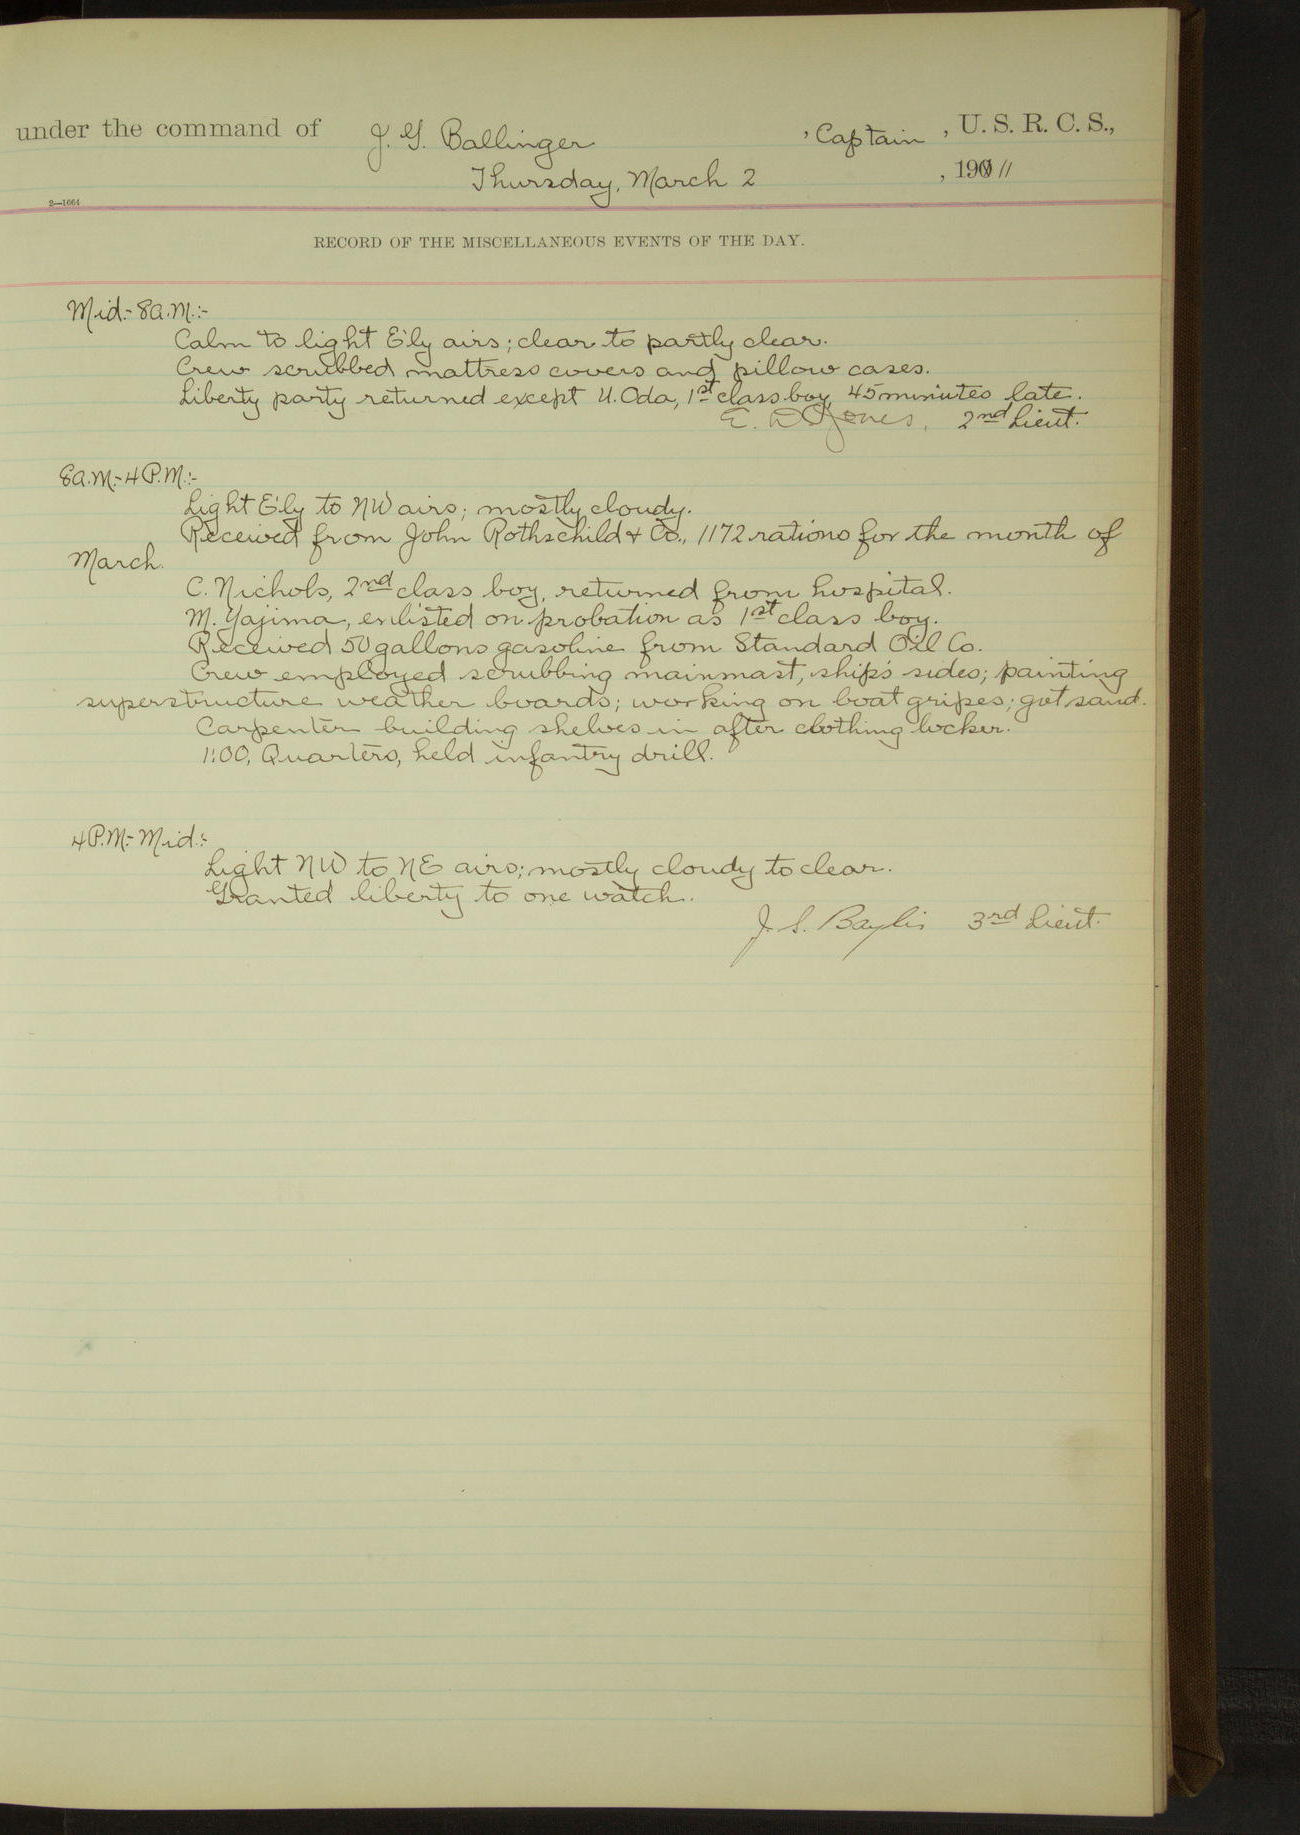 under the command of J. G. Ballinger, Captain, U. S. R. C. S.,
Thursday, March 2, 1911
2—1664
RECORD OF THE MISCELLANEOUS EVENTS OF THE DAY.
Mid.- 8 a.m.:-
Calm to light E'ly airs; clear to partly clear.
Crew scrubbed mattress covers and pillow cases.
Liberty party returned except U. Oda, 1st class boy, 45 minutes late.
E. D. Jones, 2nd Lieut.
8 a.m.- 4 P.M.:-
Light E'ly to NW airs; mostly cloudy.
Received from John Rothschild & Co., 1172 rations for the month of
March.
C. Nichols, 2nd class boy, returned from hospital.
M. Yajima, enlisted on probation as 1st class boy.
Received 50 gallons gasoline from Standard Oil Co.
Crew employed scrubbing mainmast, ship's sides; painting
superstructure weather boards; working on boat gripes; got sand.
Carpenter building shelves in after clothing locker.
1:00, Quarters, held infantry drill.
4 P.M.- Mid.:-
Light NW to NE airs; mostly cloudy to clear.
Granted liberty to one watch.
J. S. Baylis 3rd Lieut.